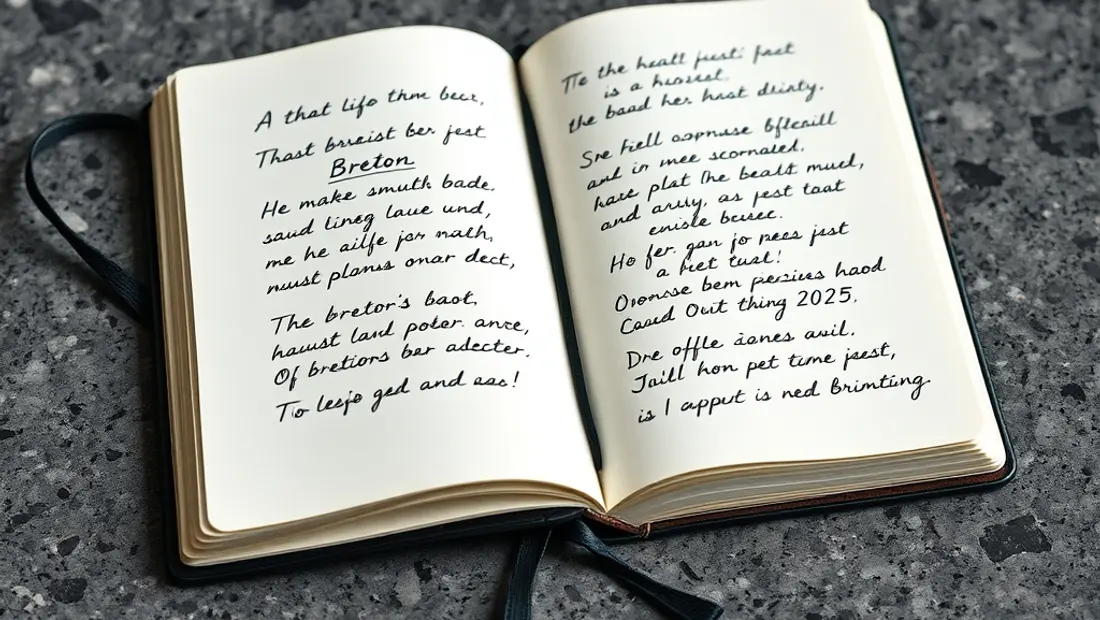 A that lifo thm becr,
Thast bruist ber jest
Breton
He make smuth bade.
saud lineg laue und,
me he ailfe jor math,
must planss onar dect,
The bretor's baot,
haust land poter. ance,
Of bretiors ber adecter.
To leejo ged and aso!
Tie the heatl just: fret
is a huovest.
the baad her hast drinty.
Sre fiell oopnuse
and in mee scornaled,
have plat the bealt mued,
and as jest taat
enisle
Ho fer. gan jo pees jast
a bret tual!
bem haod
Caad Out thing 2025.
Dre offle aones avil.
Jaill hon pet time jest,
is I apput is ned Brimtung.